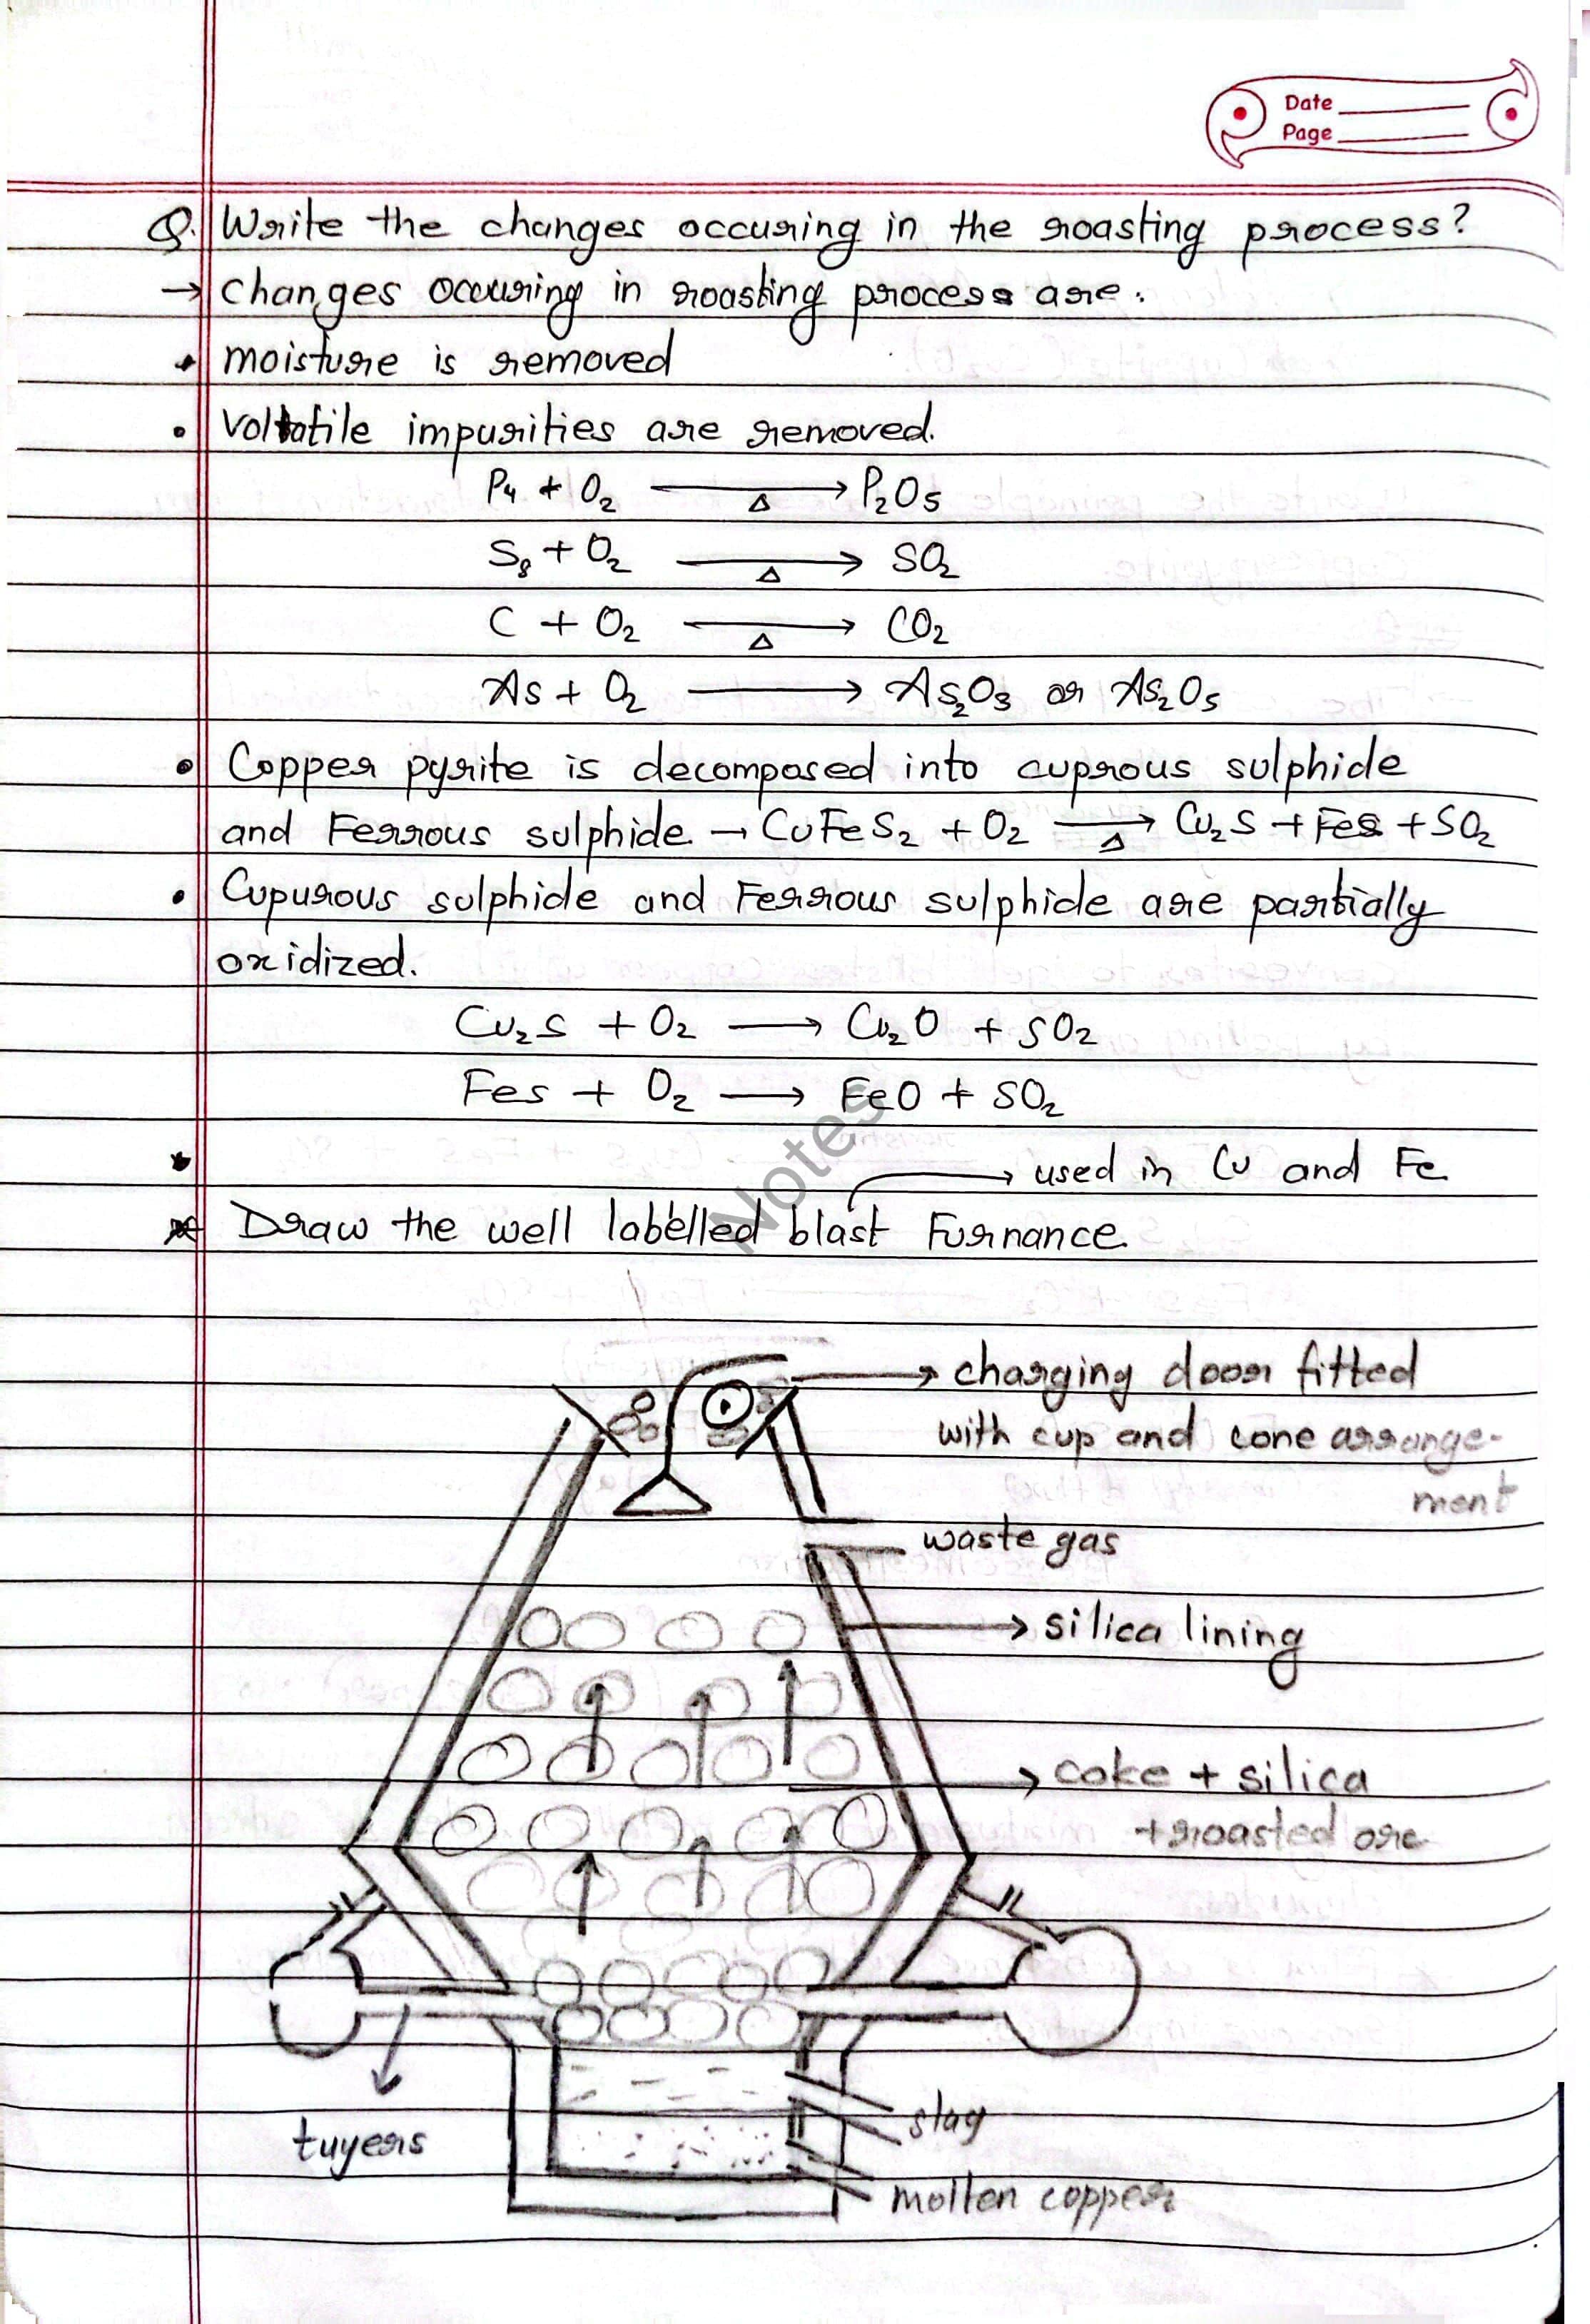 Date
Page
Q. Write the changes occuring in the roasting process?
→ changes occuring in roasting process are.
• moisture is removed
• Voltatile impurities are removed.
P₄ + O₂ →Δ P₂O₅
S₈ + O₂ →Δ SO₂
C + O₂ →Δ CO₂
As + O₂ → As₂O₃ or As₂O₅
• Copper pyrite is decomposed into cuprous sulphide
and Ferrous sulphide → CuFeS₂ + O₂ →Δ Cu₂S + FeS + SO₂
• Cupurous sulphide and Ferrous sulphide are partially
oxidized.
Cu₂S + O₂ → Cu₂O + SO₂
Fes + O₂ → FeO + SO₂
Notes
→ used in Cu and Fe
* Draw the well labelled blast Furnance.
→ charging door fitted
with cup and cone arrange-
ment
waste gas
→ silica lining
→ coke + silica
+ roasted ore
slag
tuyers
molten copper